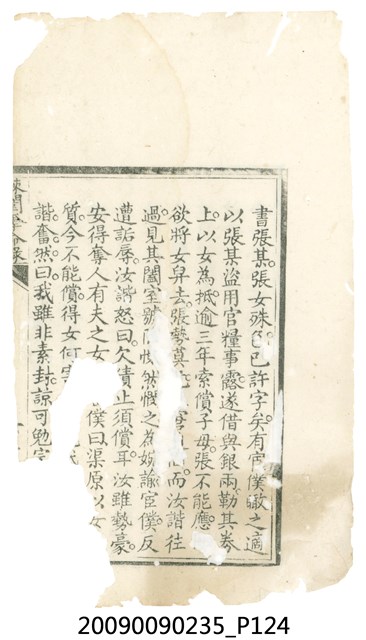 書張某。張女殊色已許字矣。有宦僕瞰之適
以張某盜用官糧事露。遂借與銀兩勒其券
上。以女為抵。逾三年索償子母。張不能應。
欲將女舁去。張勢莫 而汝諧往
過。見其闔室號 惻然憫之為婉諭宦僕。反
遭詬辱。汝諧怒曰。欠債止須償耳。汝雖勢豪。
安得奪人有夫之女 僕曰渠原以女
質。今不能償。得女何
諧奮然曰。我雖非素封。諒可勉
20090090235_P124